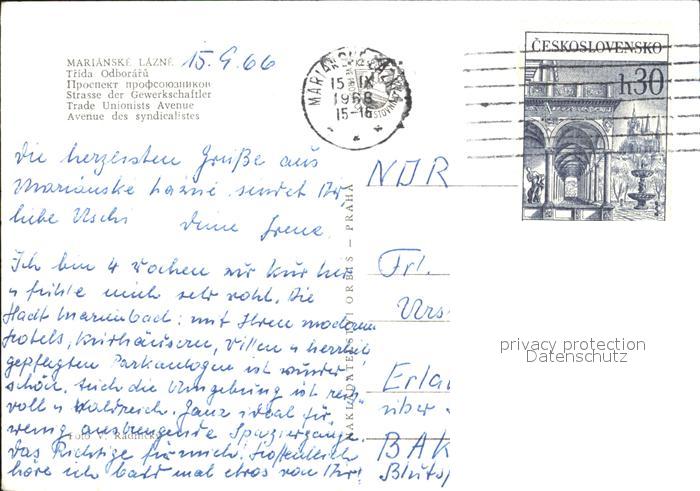 MARIÁNSKÉ LÁZNĚ 15.9.66
Třída Odborářů
Проспект профсоюзников
Strasse der Gewerkschaftler
Trade Unionists Avenue
Avenue des syndicalistes
MARIÁNSKÉ LÁZNĚ
15. IX
1968
15-16
ČESKOSLOVENSKO
h30
Die herzlichsten Grüße aus
Marianske Lazné sendet Dir
liebe Uschi Deine Irene.
Ich bin 4 Wochen zur Kur hier
u fühle mich sehr wohl. Die
Stadt Marienbad: mit Ihren modernen
Hotels, Kurhäusern, Villen u herrlich
gepflegten Parkanlagen ist wunder
schön. Auch die Umgebung ist reiz
voll u Waldreich. Ganz ideal für
wenig anstrengende Spaziergänge.
Das Richtige für mich. Hoffentlich
höre ich bald mal etwas von Dir!
Foto V. Radnický
NAKLADATELSTVÍ ORBIS — PRAHA
Frl.
Urs
Erla
über
BAK
privacy protection
Datenschutz